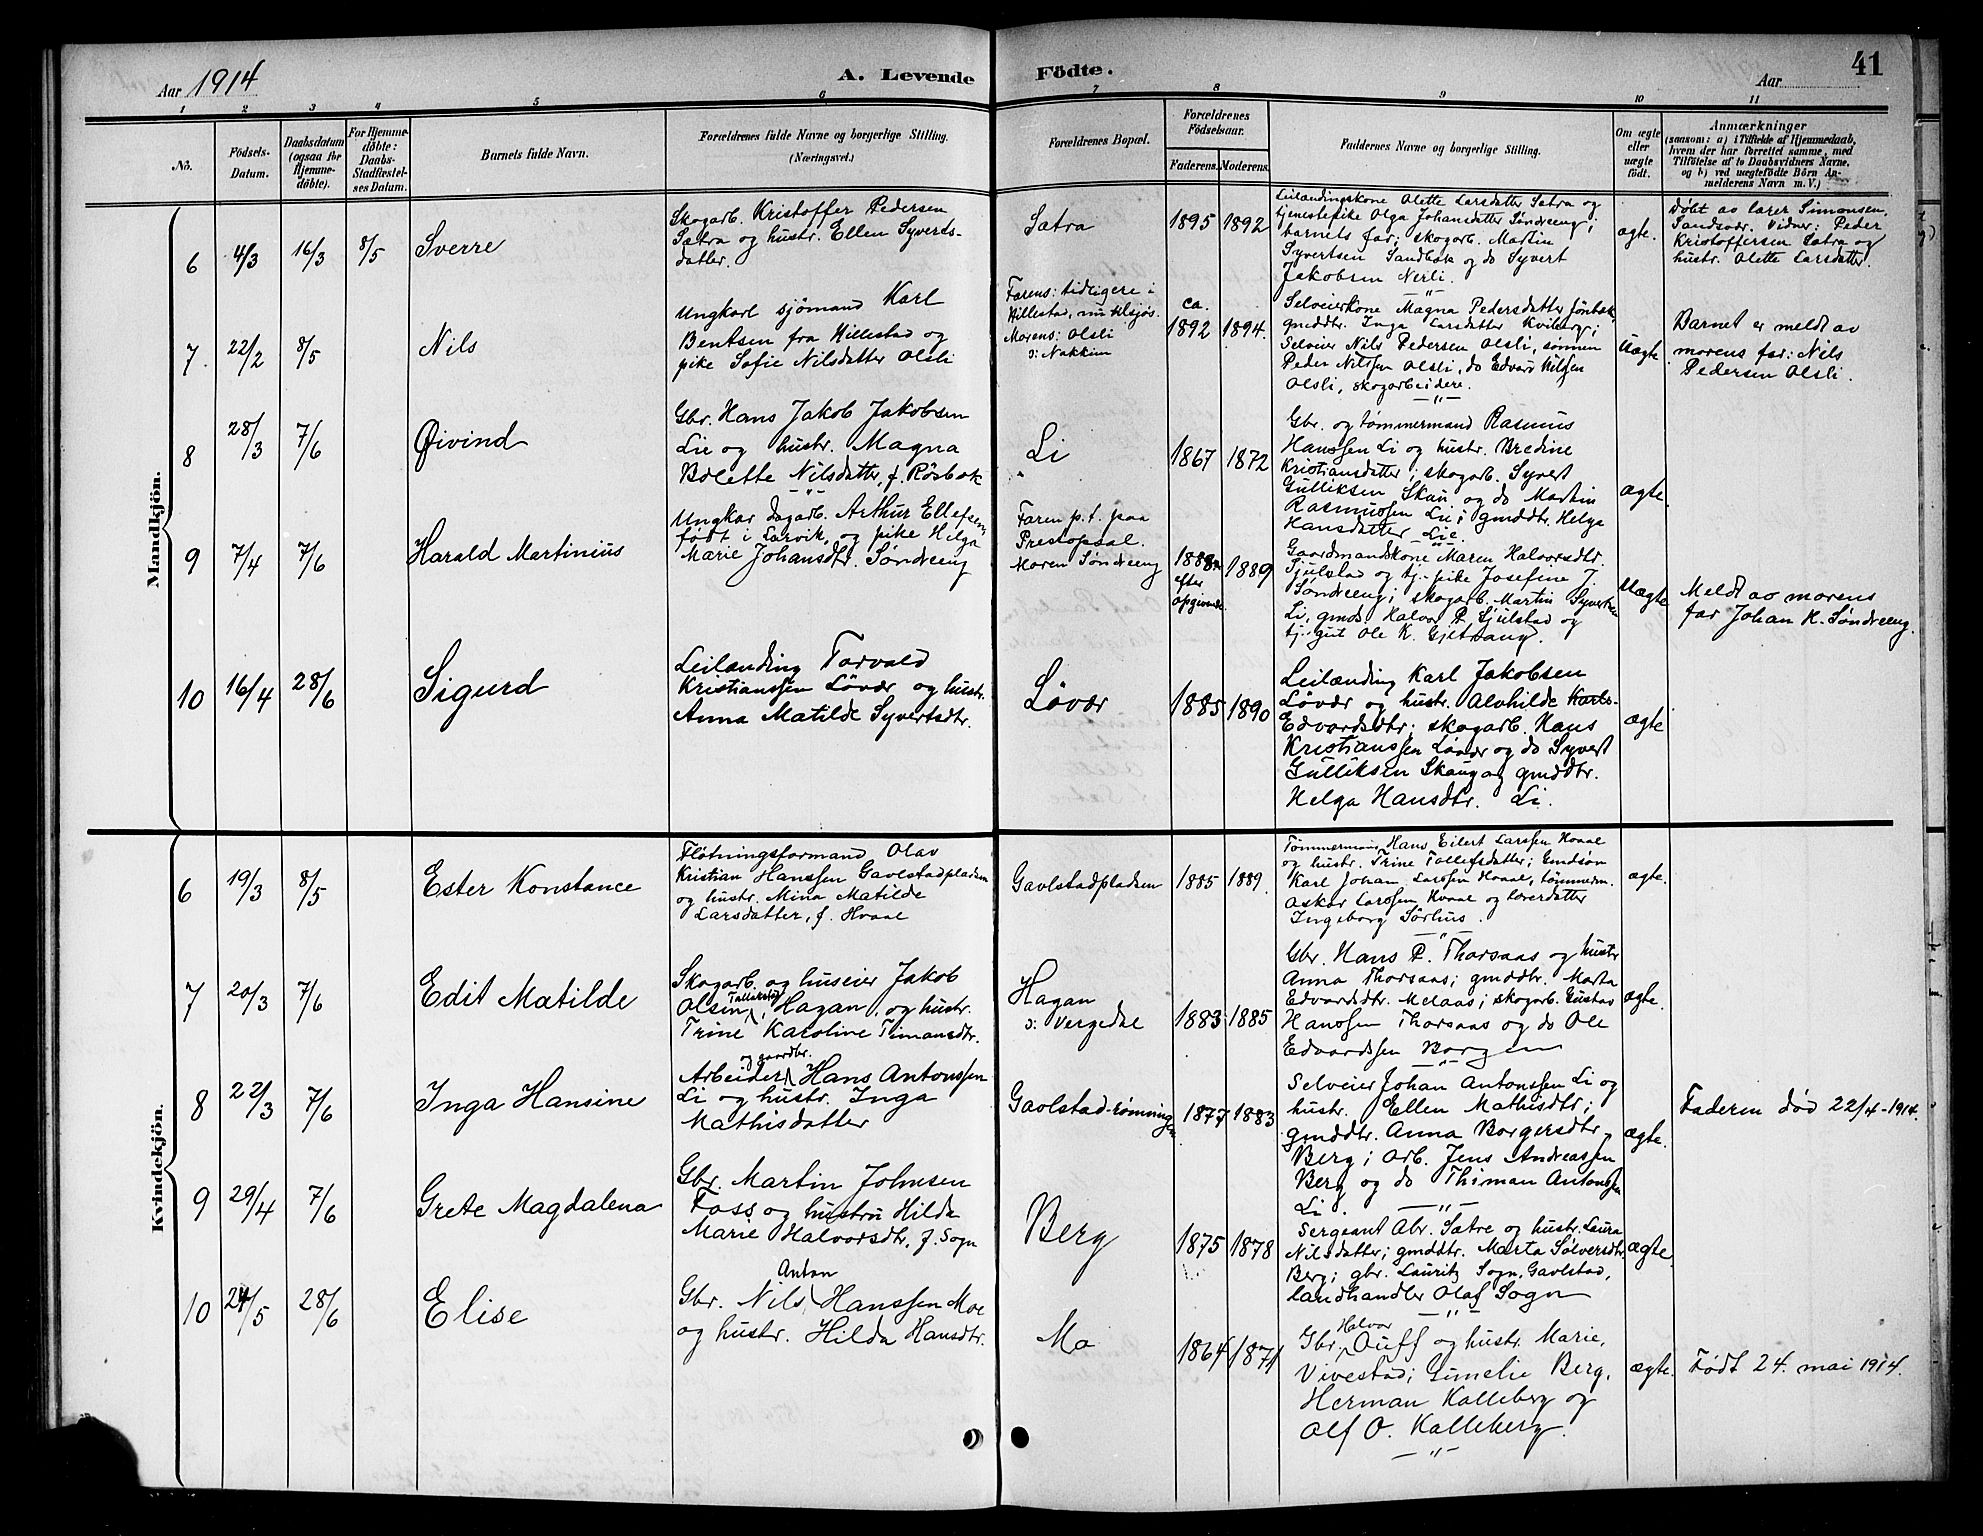 Aar 1914
A. Levende
Födte.
Aar
41
1 2 3 4 5 6 7 8 9 10 11
No.
Födsels-
Datum.
Daabsdatum
(ogsaa for
Hjemme-
døbte).
For Hjemme-
döbte:
Daabs-
Stadfæstel-
ses Datum.
Barnets fulde Navn.
Forældrenes fulde Navne og borgerlige Stilling.
(Næringsvei.)
Forældrenes Bopæl.
Forældrenes
Födselsaar.
Faderens. Moderens.
Faddernes Navne og borgerlige Stilling.
Om ægte
eller
uægte
födt.
Anmærkninger
(saasom: a) i Tilfælde af Hjemmedaab,
hvem der har forrettet samme, med
Tilföielse af to Daabsvidners Navne,
og b) ved uægtefödte Börn An-
melderens Navn m. V.)
Mandkjön.
6 4/3 16/3 8/5 Sverre
Skogarb. Kristoffer Pedersen
Sætra og hustr. Ellen Syverts-
datter.
Sætra
1895 1892
Leilændingskone Olette Larsdatter Sætra og
tjenestepike Olga Johansdatter Søndreeng;
barnets far; skogarb. Martin
Syvertsen Sandbæk og do Syvert
Jakobsen Nerli.
ægte.
Døbt av lærer Simonsen,
Sandsvær. Vidner: Peder
Kristoffersen Sætra og
hustr. Olette Larsdatter.
7 22/2 8/5 Nils
Ungkarl sjömand Karl
Bentsen fra Hillestad og
pike Sofie Nilsdatter Olsli
Farens: tidligere i
Hillestad, nu tilsjøs.
Morens: Olsli
i Nakkim
ca.
1892 1894.
Selveierkone Magna Pedersdatter
gmddtr. Inga Larsdatter Kviberg;
Selveier Nils Pedersen Olsli, sönnen
Peder Nilssen Olsli, do Edvard Nilssen
Olsli, skogarbeidere.
Uægte
Barnet er meldt av
morens far: Nils
Pedersen Olsli.
8 28/3 7/6 Øivind
Gbr. Hans Jakob Jakobsen
Lie og hustr. Magna
Bolette Nilsdatter, f. Rösbæk
Li
1867 1872
Gbr. og tømmermand Rasmus
Hanssen Li og hustr. Bredine
Kristiansdatter; skogarb. Syvert
Gulliksen Skau og do Martin
Rasmussen Li; gmddtr. Helga
Hansdatter Lie.
ægte
9 7/4 7/6 Harald Martinius
Ungkar dagarb. Arthur Ellefsen
født i Larvik, og pike Helga
Marie Johansdtr. Søndreeng
Faren p.t. paa
Prestopsal.
Moren Søndreeng
1888
efter
opgivende.
1889
Gaardmandskone Maren Halvorsdtr.
Gjulstad og tj.-pike Josefine J.
Søndreeng; skogarb. Martin Syvertsen
Li, gmds Halvor P. Gjulstad og
tj.-gut Ole K. Gjetrang.
Uægte
Meldt av morens
far Johan K. Søndreeng.
10 16/4 28/6 Sigurd
Leilænding Torvald
Kristianssen Lövær og hustr.
Anna Matilde Syvertsdtr.
Lövær
1885 1890
Leilænding Karl Jakobsen
Lövær og hustr. Alvhilde Karls-
Edvardsdtr; skogarb. Hans
Kristianssen Lövær og do Syvert
Gulliksen Skau og gmddtr.
Helga Hansdtr. Li.
ægte
Kvindekjön.
6 19/3 8/5 Ester Konstance
Fløtningsformand Olav
Kristian Hanssen Gavlstadpladsen
og hustr. Mina Matilde
Larsdatter, f. Hvaal
Gavlstadpladsen
1885 1889.
Tømmermann Hans Eilert Larssen Hvaal
og hustr. Trine Tollefsdatter; Gmdsøn
Karl Johan Larssen Hvaal, tømmerm.
Oskar Larssen Hvaal og lærerdatter
Ingeborg Sörhus.
ægte.
7 20/3 7/6 Edit Matilde
Skogarb. og huseier Jakob
Olsen, Hagan, og hustr.
Trine Karoline Timansdtr.
Hagan
i Vergedal
1883 1885
Gbr. Hans P. Thorsaas og hustr
Anna Thorsaas; gmddtr. Marta
Edvardsdtr. Melaas; skogarb. Gustav
Hanssen Thorsaas og do Ole
Edvardssen Borgen
ægte.
8 22/3 7/6 Inga Hansine
og gaardbr.
Arbeider Hans Antonssen
Li og hustr. Inga
Mathisdatter
Gavlstad-rømningen
1877 1883
Selveier Johan Antonssen Li og
hustr. Ellen Mathisdtr;
gmddtr. Anna Borgersdtr
Berg; arb. Jens Andreassen
Berg og do Thiman Antonssen
Li.
ægte.
Faderen död 22/4-1914.
9 29/4 7/6 Grete Magdalena
Gbr. Martin Johnsen
Foss og hustru Hilda
Marie Halvorsdtr, f. Sogn
Berg
1875 1878
Sergeant Abr. Sætre og hustr. Laura
Nilsdatter; gmddtr. Marta Sølversdtr
Berg; gbr. Lauritz Sogn, Gavlstad,
landhandler Olaf Sogn
ægte
10 24/5 28/6 Elise
Anton
Gbr. Nils Hanssen Moe
og hustr. Hilda Hansdtr.
Mo
1864 1871
Halvor
Gbr. Auff og hustr. Marie,
Vivestad; Gunelie Berg,
Herman Kalleberg og
Olf O. Kalleberg.
ægte.
Født 24. mai 1914.